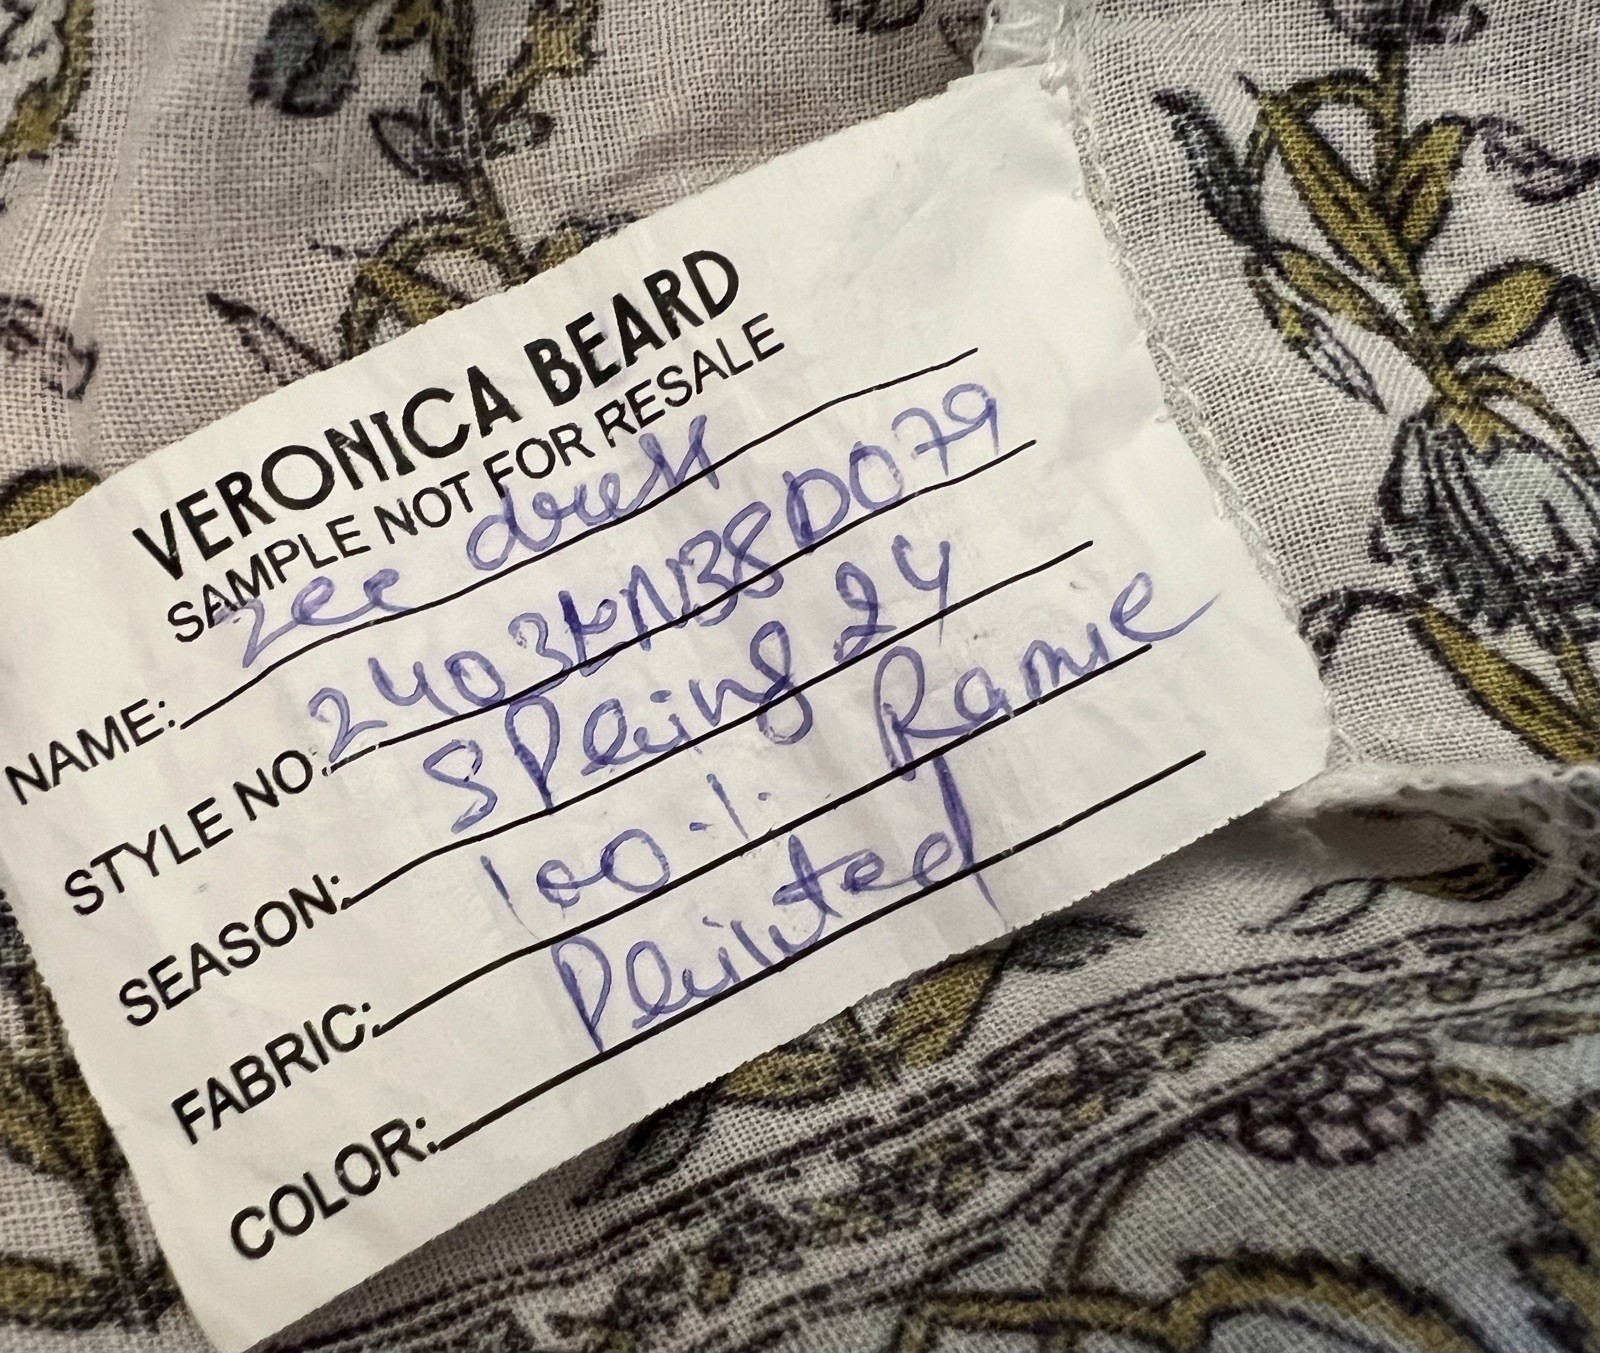 VERONICA BEARD
SAMPLE NOT FOR RESALE
NAME: zee dress
STYLE NO: 2403KN38D079
SEASON: SPring 24
FABRIC: 100 % Ramie
COLOR: Printed